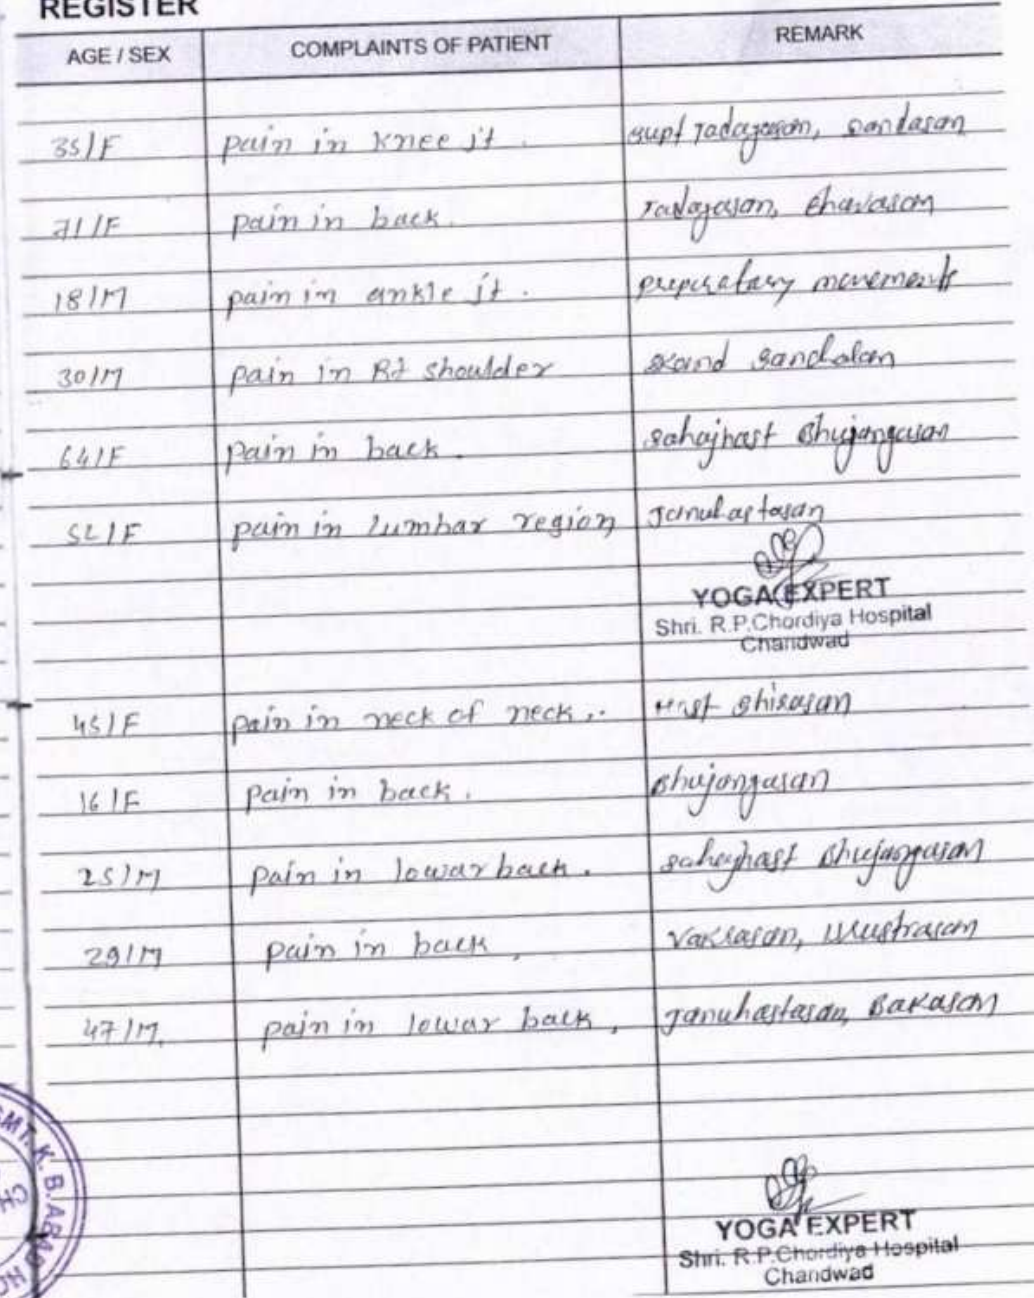 REGISTER
AGE / SEX COMPLAINTS OF PATIENT REMARK
35/F pain in knee jt. supt Tadagasan, Dandasan
71/F pain in back. Tadagasan, Shavasan
18/M pain in ankle jt. preperatary movements
30/M pain in Rt shoulder skand sanchalan
64/F pain in back. sahajhast Bhujangasan
52/F pain in Lumbar region Januhastasan
YOGA EXPERT
Shri. R.P.Chordiya Hospital
Chandwad
45/F pain in neck of neck.. Hast shisasan
16/F pain in back. Bhujangasan
25/M pain in lowar back. sahajhast Bhujangasan
29/M pain in back, Vakrasan,
47/M. pain in lowar back, Januhastasan, Bakasan
SMT. K. B. ABAD
YOGA EXPERT
Shri. R.P.Chordiya Hospital
Chandwad